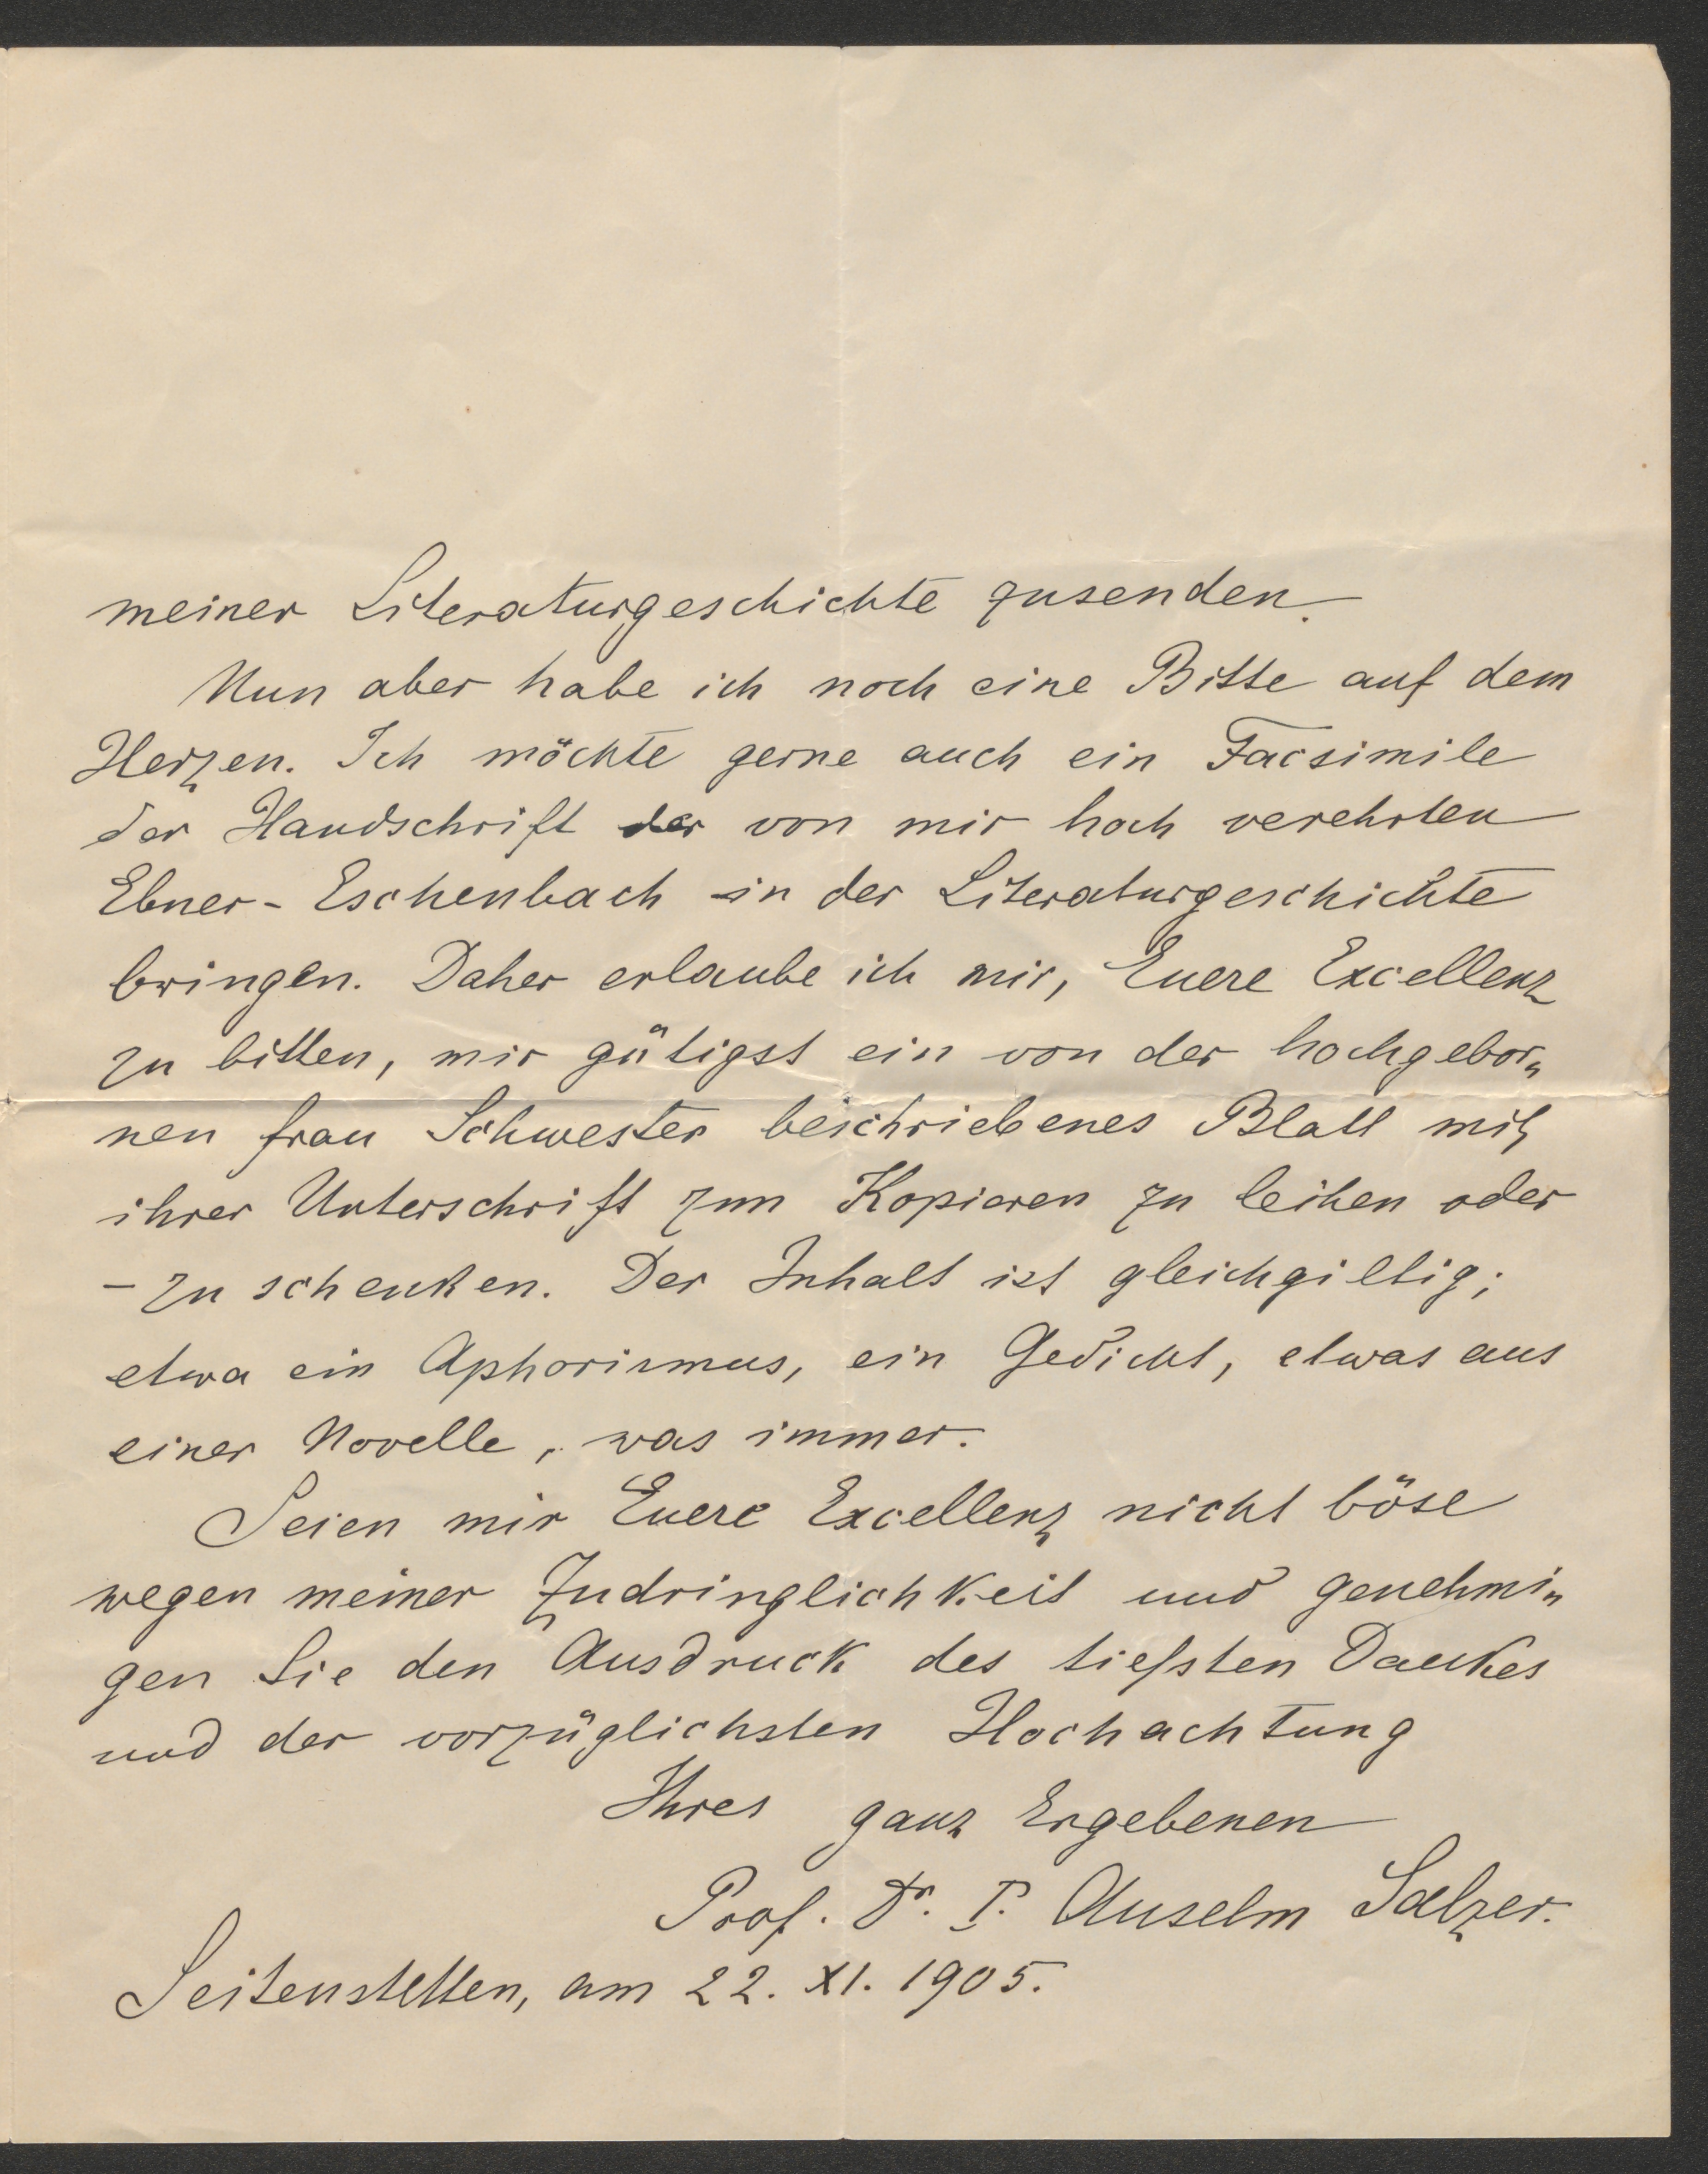 meiner Literaturgeschichte zusenden.
Nun aber habe ich noch eine Bitte auf dem
Herzen. Ich möchte gerne auch ein Facsimile
der Handschrift der von mir hoch verehrten
Ebner-Eschenbach in der Literaturgeschichte
bringen. Daher erlaube ich mir, Euere Excellenz
zu bitten, mir gütigst ein von der hochgebor„
nen Frau Schwester beschriebenes Blatt mit
ihrer Unterschrift zum Kopieren zu leihen oder
– zu schenken. Der Inhalt ist gleichgiltig;
etwa ein Aphorismus, ein Gedicht, etwas aus
einer Novelle, was immer.
Seien mir Euere Excellenz nicht böse
wegen meiner Zudringlichkeit und genehmi„
gen Sie den Ausdruck des tiefsten Dankes
und der vorzüglichsten Hochachtung
Ihres ganz Ergebenen
Prof. Dr. P. Anselm Salzer.
Seitenstetten, am 22. XI. 1905.